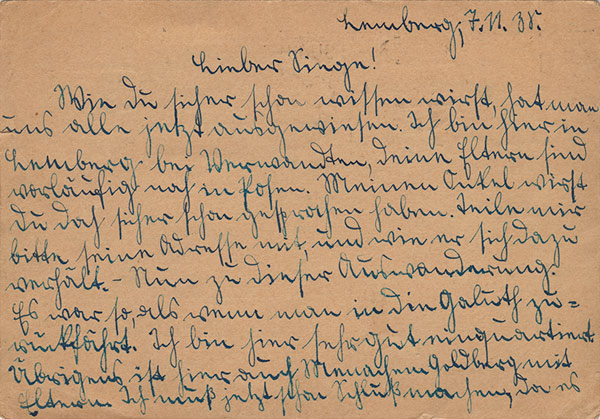 Lemberg, 7.11.38.
Lieber Singe!
Wie du sicher schon wissen wirst, hat man
uns alle jetzt ausgewiesen. Ich bin hier in
Lemberg bei Verwandten, deine Eltern sind
vorläufig noch in Posen. Meinen Onkel wirst
du doch sicher schon gesprochen haben. Teile mir
bitte seine Adresse mit, und wie er sich dazu
verhält. – Nun zu dieser Auswanderung.
Es war so, als wenn man in die Galuth zu=
rückfährt. Ich bin hier sehr gut einquartiert.
Übrigens ist hier auch Menachem Goldberg mit
Eltern. Ich muß jetzt schon Schluß machen, da es